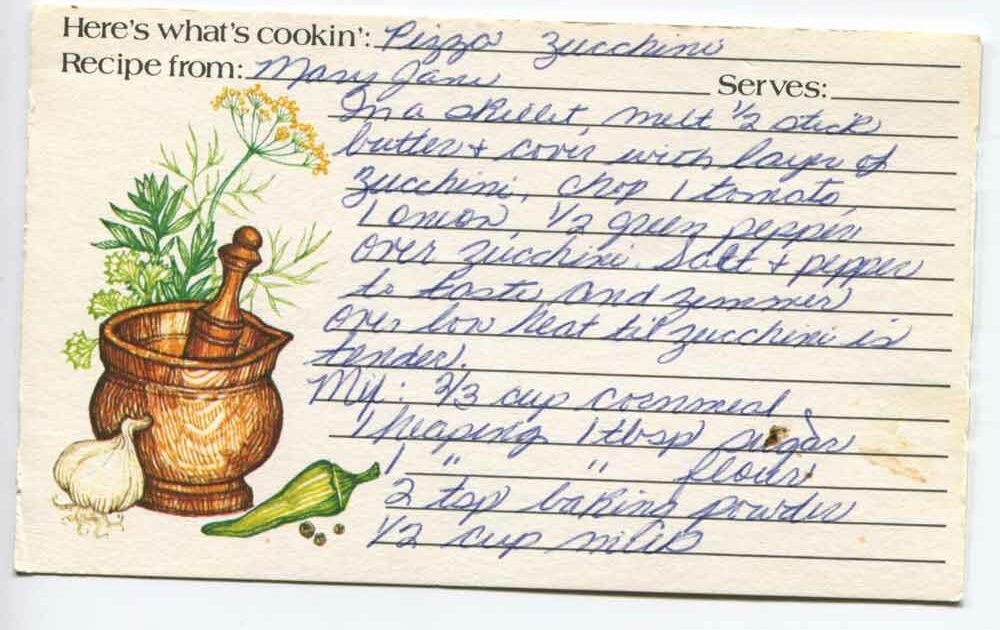 Here's what's cookin': Pizza Zucchini
Recipe from: Mary Jane Serves:
In a skillet, melt 1/2 stick
butter + cover with layer of
zucchini, chop 1 tomato,
1 onion, 1/2 green pepper
over zucchini. Salt + pepper
to taste and zimmer
over low heat til zucchini is
tender.
Mix: 2/3 cup cornmeal
1 heaping 1 tbsp sugar
1 " " flour
2 tsp baking powder
1/2 cup milk